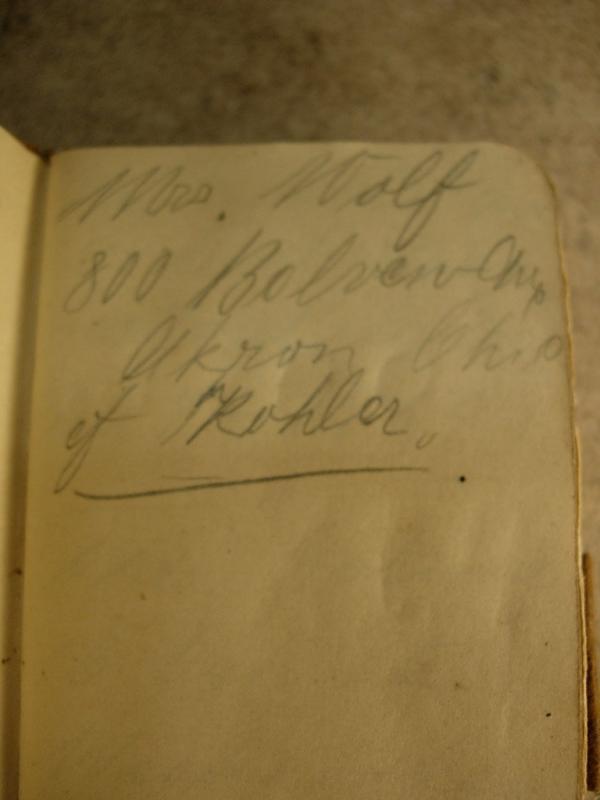 Mrs. Wolf
800 Bolvew Ave
Akron Ohio
of Kohler.